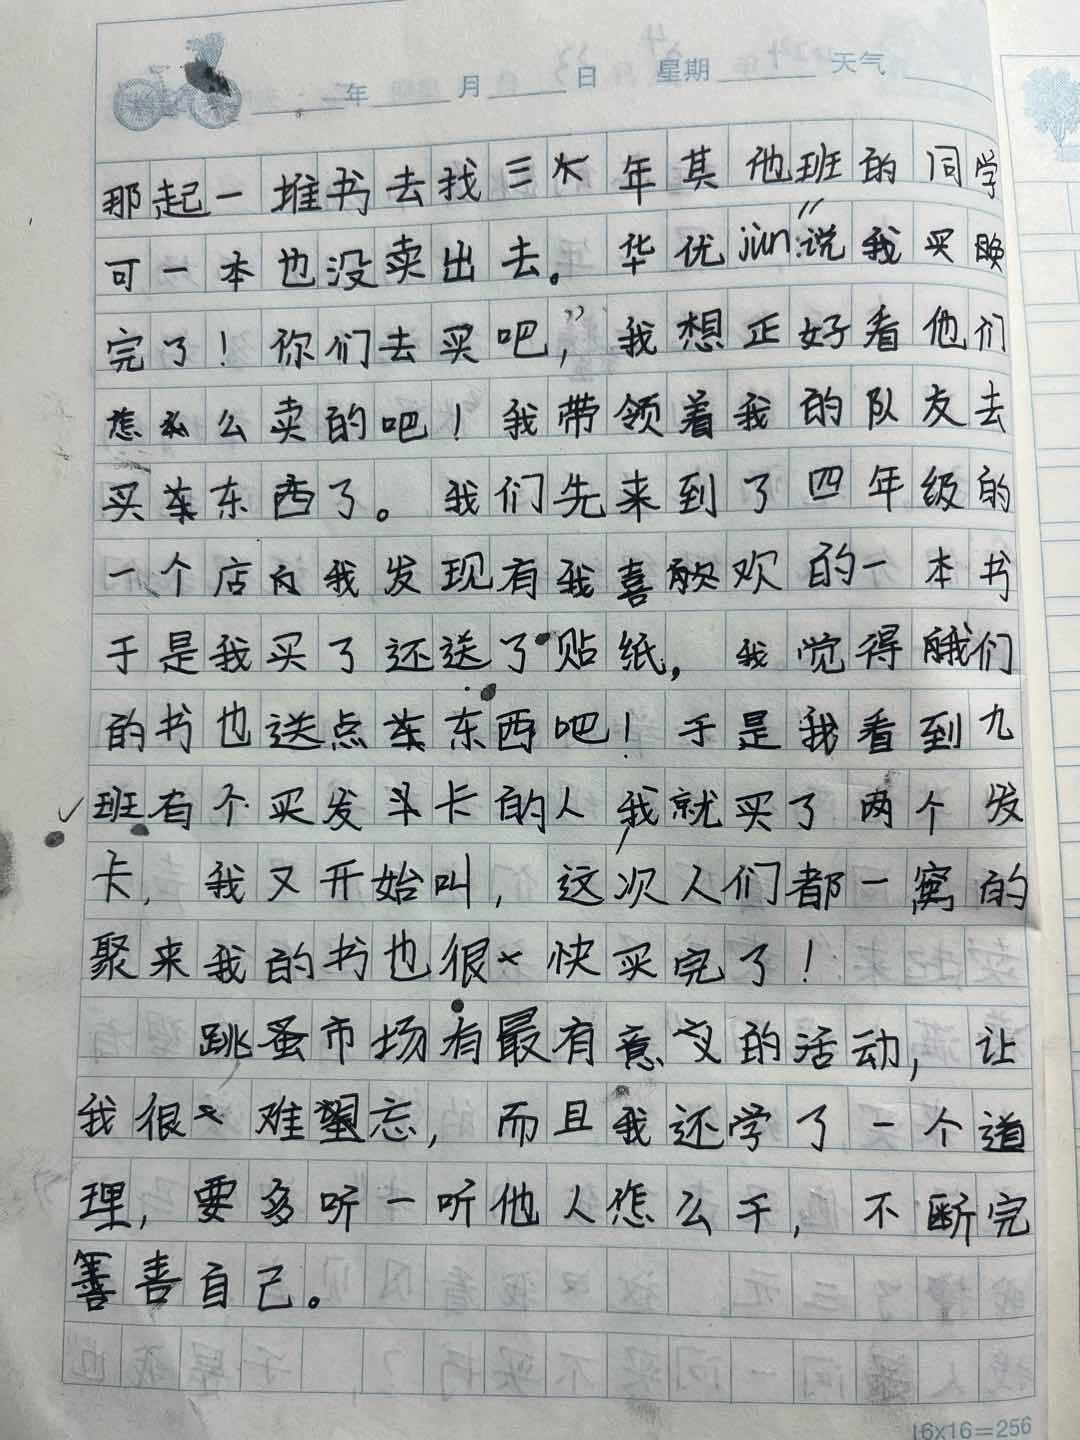 年 月 日 星期 天气
那起一堆书去找三年其他班的同学
可一本也没卖出去。华优jùn:“说我买
完了！你们去买吧，”我想正好看他们
怎么卖的吧！我带领着我的队友去
买东西了。我们先来到了四年级的
一个店内我发现有我喜欢的一本书
于是我买了还送了贴纸，我觉得我们
的书也送点东西吧！于是我看到九
班有个买发斗卡的人我就买了两个发
卡，我又开始叫，这次人们都一窝的
聚来我的书也很快买完了！
跳蚤市场有最有意义的活动，让
我很难忘，而且我还学了一个道
理，要多听一听他人怎么干，不断完
善自己。
16×16=256